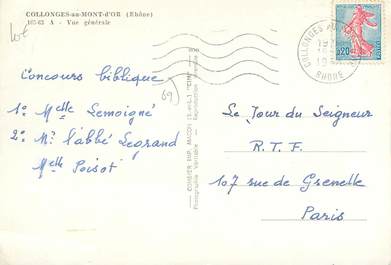 COLLONGES-au-MONT-d'OR (Rhône)
105-63 A - Vue générale
Lot
Concours biblique
1º Melle Lemoigné
2º Mr l'abbé Legrand
Melle Poisot
69)
COMBIER IMP. MACON (S.-et-L.) "CIM"
Photographie Véritable - Reproduction
COLLONGES AU
RHONE
0,20
Le Jour du Seigneur
R.T.F.
107 rue de Grenelle
Paris